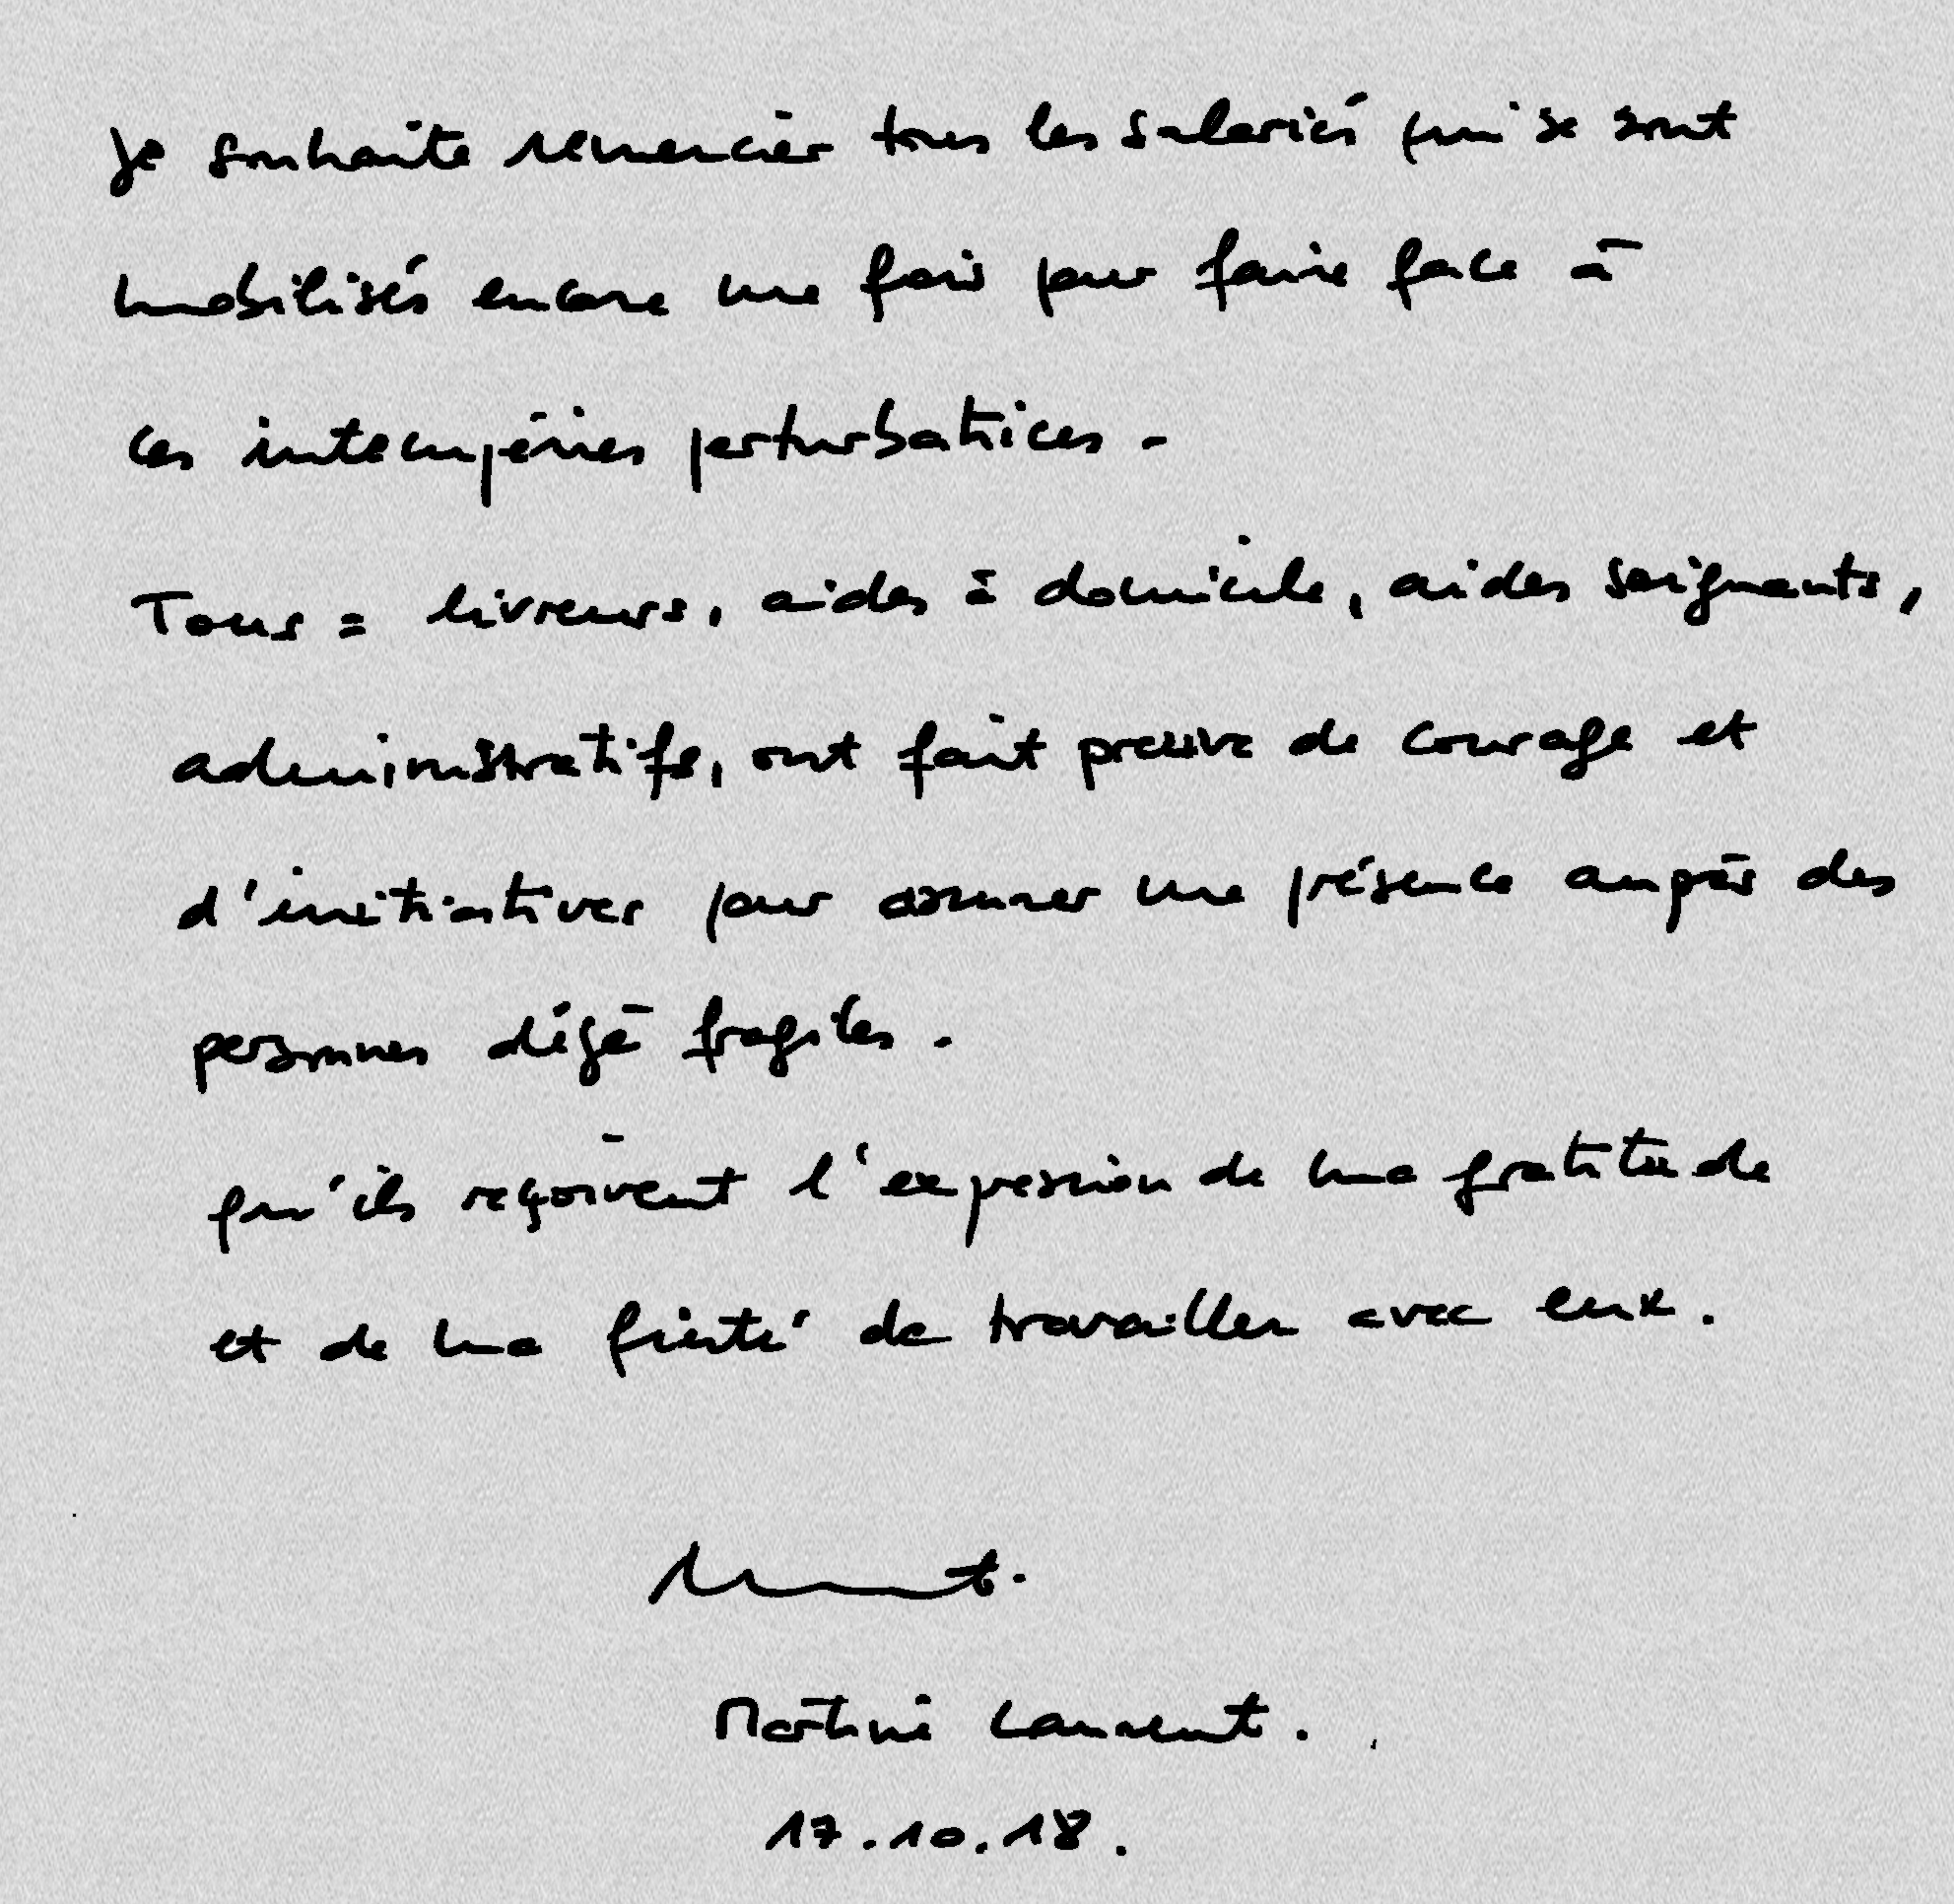 Je souhaite remercier tous les salariés qui se sont
mobilisés encore une fois pour faire face à
ces intempéries perturbatrices -
Tous = livreurs, aides à domicile, aides soignants,
administratifs, ont fait preuve de courage et
d'initiatives pour assurer une présence auprès des
personnes déjà fragiles.
qu'ils reçoivent l'expression de ma gratitude
et de ma fierté de travailler avec eux.
Martine Laurent.
17.10.18.